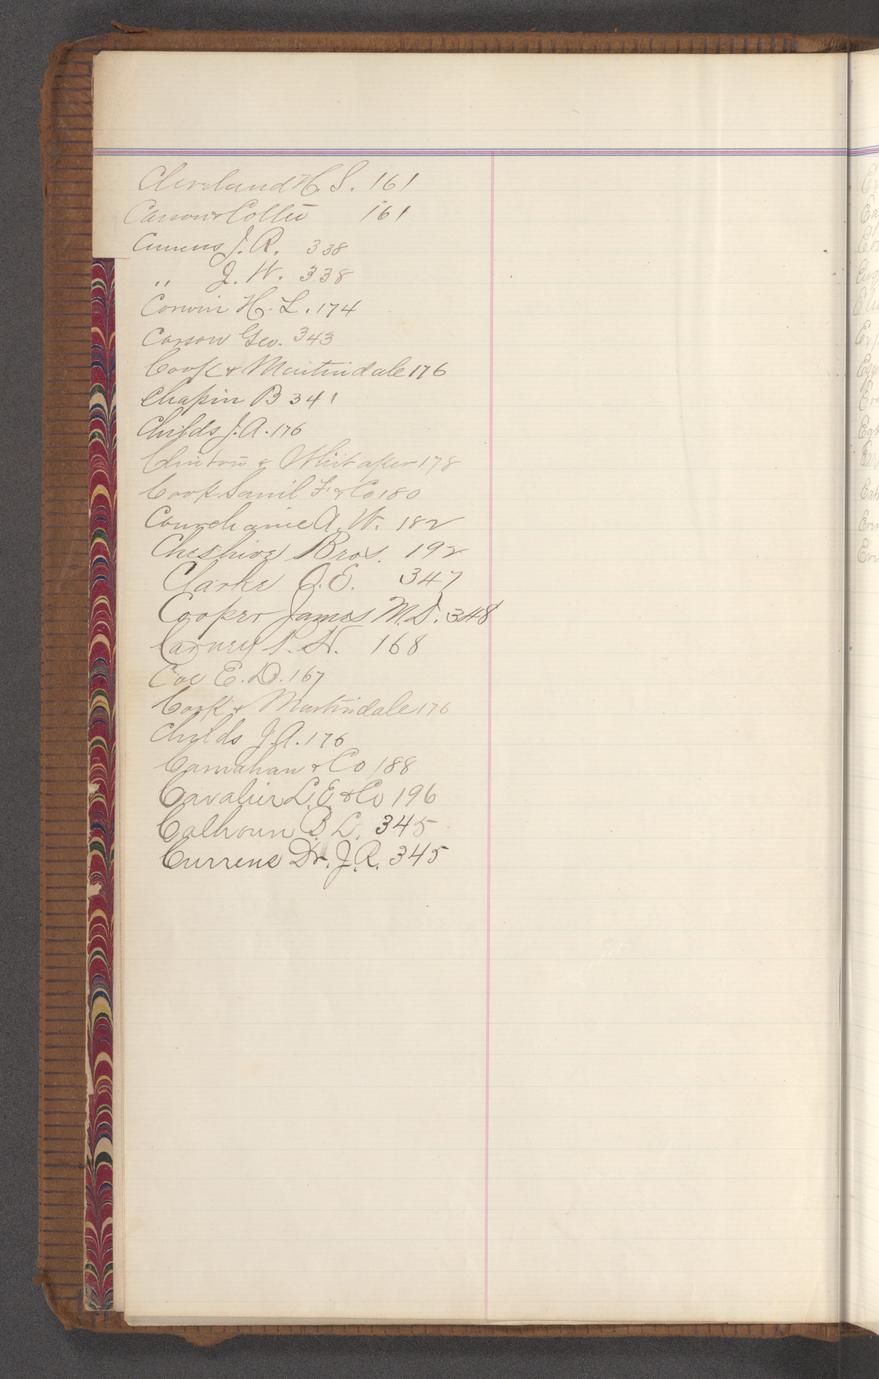 Cleveland H. S. 161
Carson & Collie 161
Currens J. R. 338
,, J. W. 338
Corwin H. L. 174
Carson Geo. 343
Cook & Martindale 176
Chapin B 341
Childs J. A. 176
Clinton & Whitaker 178
Cook Saml F. & Co 180
A. W. 182
Cheshire Bros. 192
Clarke J. E. 347
Cooper James M. D. 348
Carney P. H. 168
Coe E. D. 167
Cook & Martindale 176
Childs J A. 176
Carnahan & Co 188
Cavalier L. E. & Co 196
Calhoun B L. 345
Currens Dr. J. R. 345